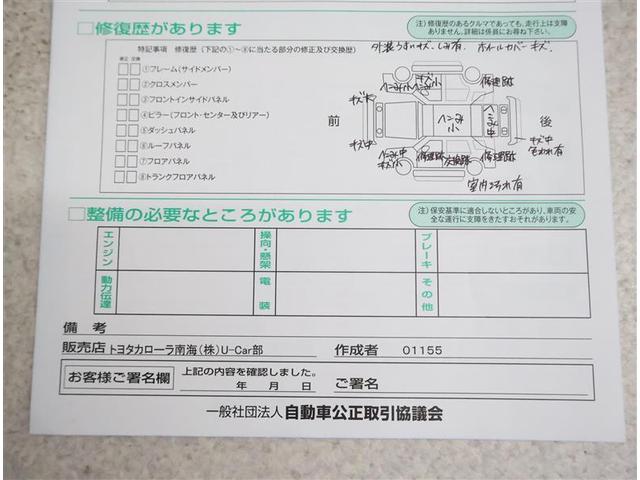 □修復歴があります
注）修復歴のあるクルマであっても、走行上は支障
ありません。詳細は係員にお尋ね下さい。
特記事項 修復歴（下記の①～⑧に当たる部分の修正及び交換歴）
修正 交換
①フレーム(サイドメンバー)
②クロスメンバー
③フロントインサイドパネル
④ピラー(フロント・センター及びリアー)
⑤ダッシュパネル
⑥ルーフパネル
⑦フロアパネル
⑧トランクフロアパネル
外装うすいキズ、しみ有、ホイルカバーキズ
前
後
キズ小
へこみ小
修理跡
キズ大
へこみ小
へこみ中
キズ中
キズ中
色あれ有
へこみ中
キズ小
修理跡
交換跡
修理跡
室内よごれ有
□整備の必要なところがあります
注）保安基準に適合しないところがあり、車両の安
全な運行に支障をきたすおそれがあります。
エンジン
操向・懸架
ブレーキ
動力伝達
電装
その他
備考
販売店 トヨタカローラ南海(株)U-Car部 作成者 01155
お客様ご署名欄
上記の内容を確認しました。
年 月 日 ご署名
一般社団法人 自動車公正取引協議会